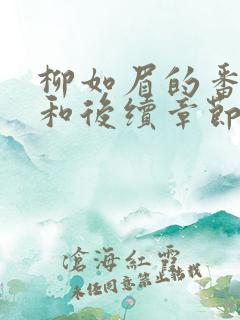 柳如眉的番
和後續章節
滄海紅雪
未经同意禁止转载